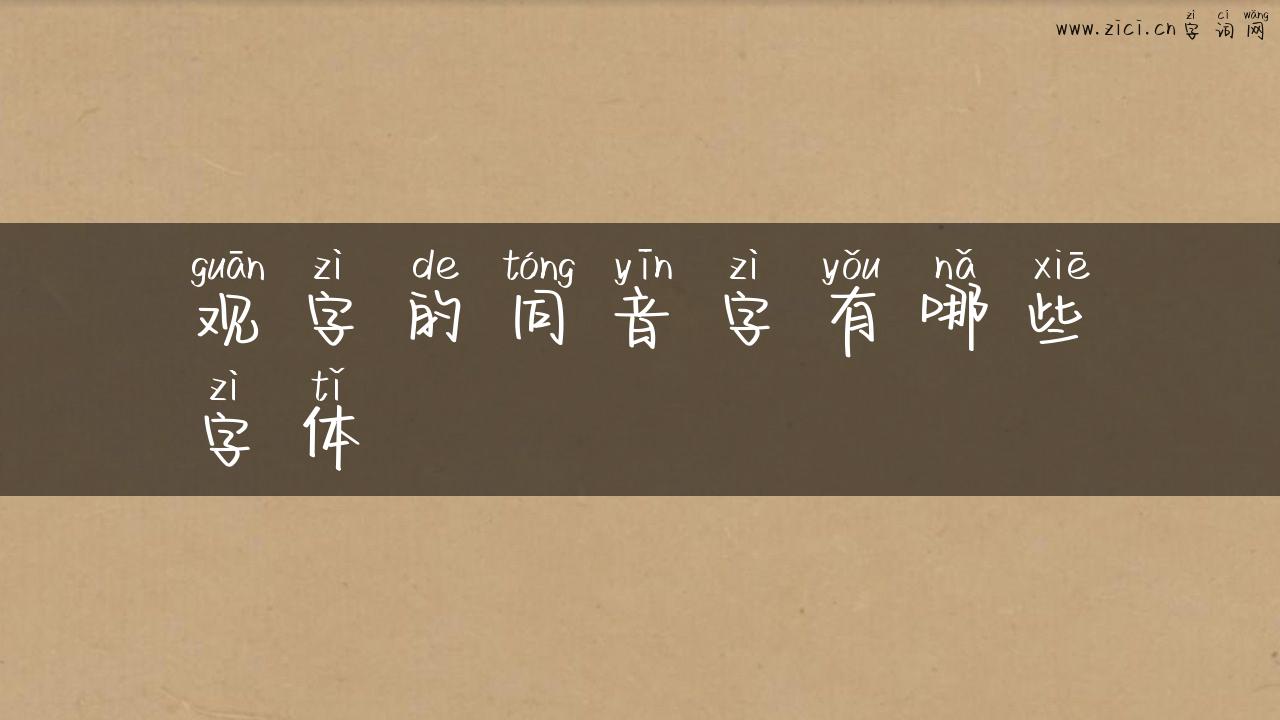 zì cí wǎng
www.zici.cn 字词网
guān zì de tóng yīn zì yǒu nǎ xiē
观字的同音字有哪些
zì tǐ
字体